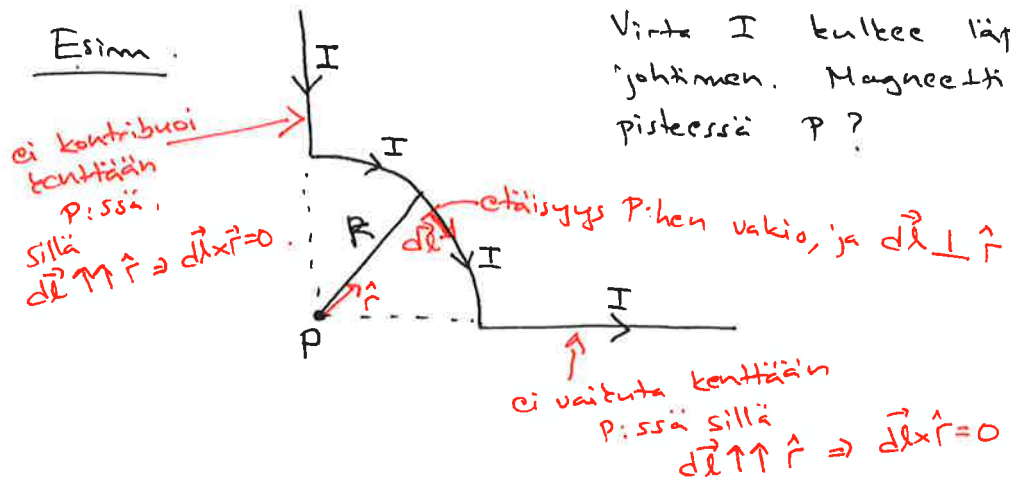 Esim.
Virta I kulkee läp
johtimen. Magneetti
pisteessä P?
I
ei kontribuoi
kenttään
P:ssä,
sillä
d\vec{l} ↑↑ r̂ ⇒ d\vec{l}×\vec{r}=0.
I
R
d\vec{l}
etäisyys P:hen vakio, ja d\vec{l} ⊥ r̂
I
r̂
P
I
ei vaikuta kenttään
P:ssä sillä
d\vec{l} ↑↑ r̂ ⇒ d\vec{l}×r̂=0